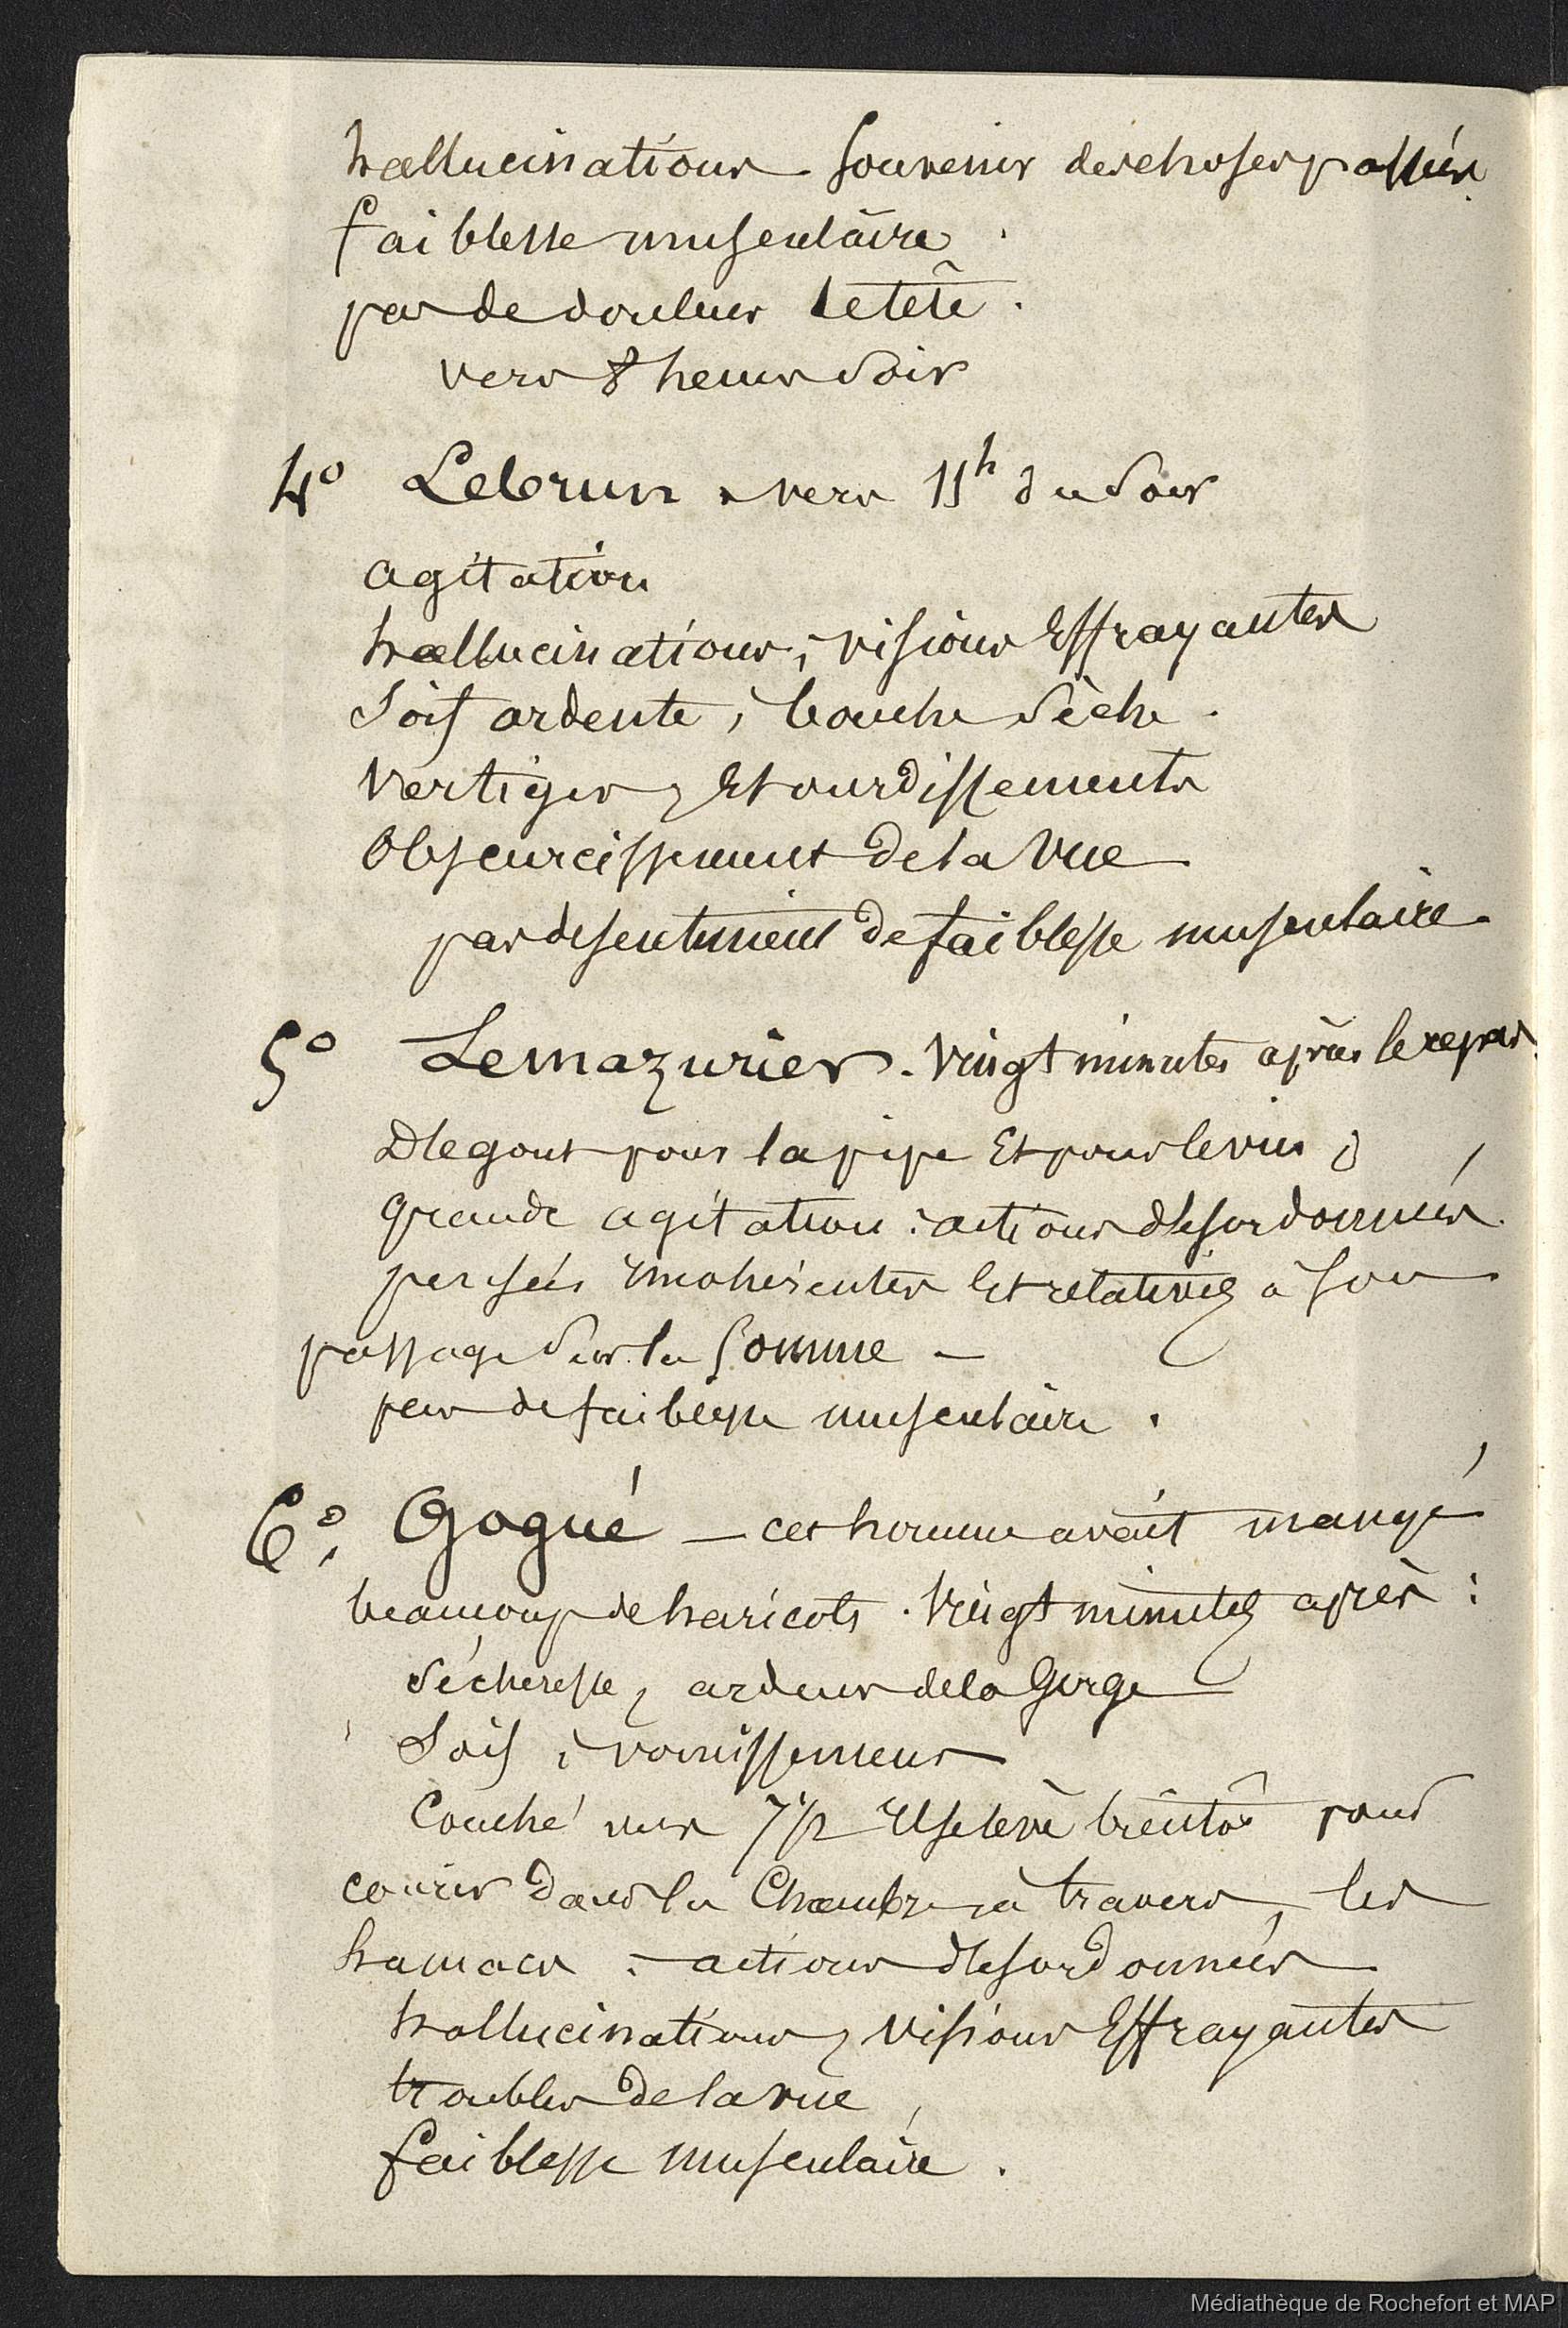 hallucinations souvenir des choses passées.
faiblesse musculaire.
pas de douleur de tête.
vers 8 heures soir
4° Lebrun. vers 11h du soir
agitation
hallucinations, visions Effrayantes
soif ardente, bouche sèche.
vertiges, Etourdissements
Obscurcissement de la vue
pas de sentiment de faiblesse musculaire.
5° Lemazurier. vingt minutes après le repas.
Dégout pour la pipe Et pour le vin;
grande agitation: actions désordonnées.
pensées incohérentes Et relatives à son
passage sur la Somme —
peu de faiblesse musculaire.
6°. Gogué — cet homme avait mangé
beaucoup de haricots. vingt minutes après:
sécheresse, ardeur de la Gorge
soif, vomissement
Couché vers 7 1/2 Il se lève bientôt pour
courir dans la Chambre à travers, les
hamacs. actions désordonnées
hallucinations, visions Effrayantes
troubles de la vue,
faiblesse musculaire.
Médiathèque de Rochefort et MAP